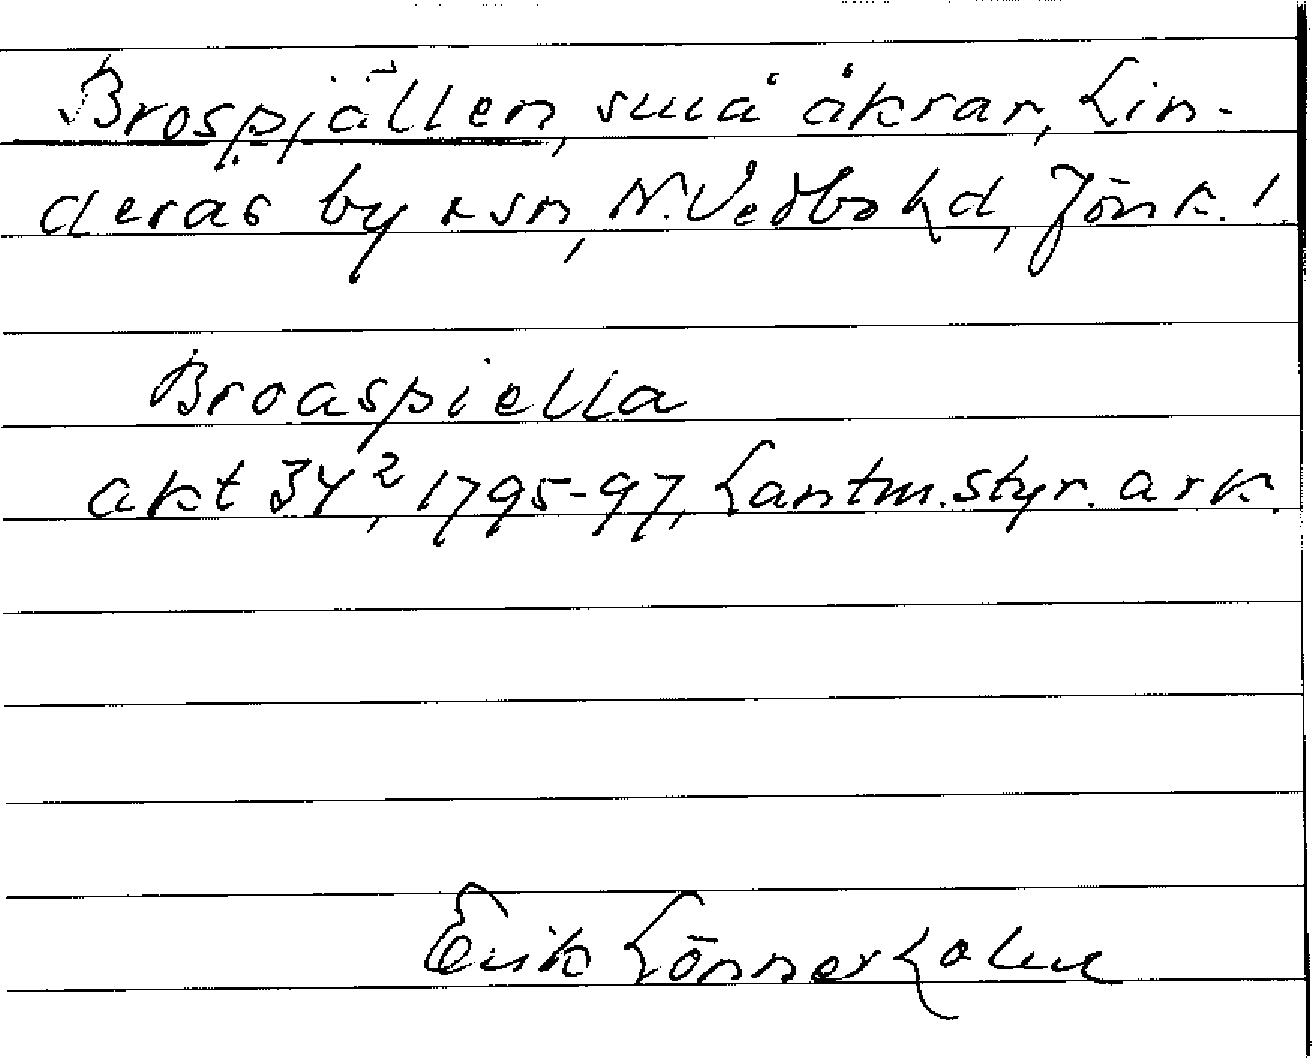 Brospjällen, små åkrar, Lin-
derås by o sn, N. Vedbo hd, Jönk. l.
Broaspiella
akt 34², 1795-97, Lantm.styr. ark.
Erik Lönnerholm